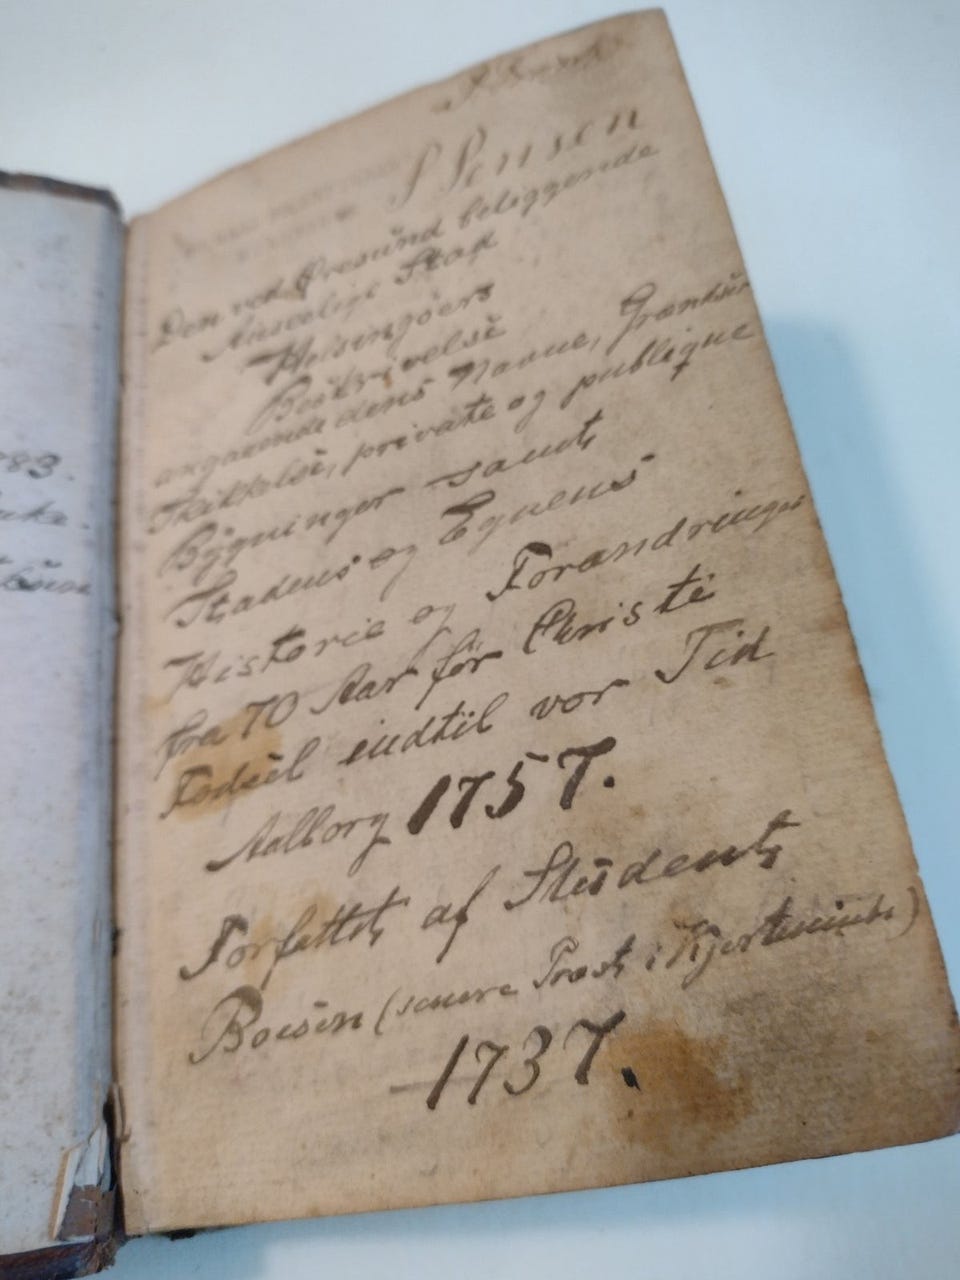 S Jensen
Den ved Øresund beliggende
Anseelige Stad
Helsingøers
Beskrivelse
angaaende dens Navne, Grændser
Skikkelse, private og publique
Bygninger samt
Stadens og Egnens
Historie og Forandringer
fra 70 Aar før Christi
Fødsel indtil vor Tid
Aalborg 1757.
Forfattet af Student
Boesen (senere Præst i Kjerteminde)
1737.
783.